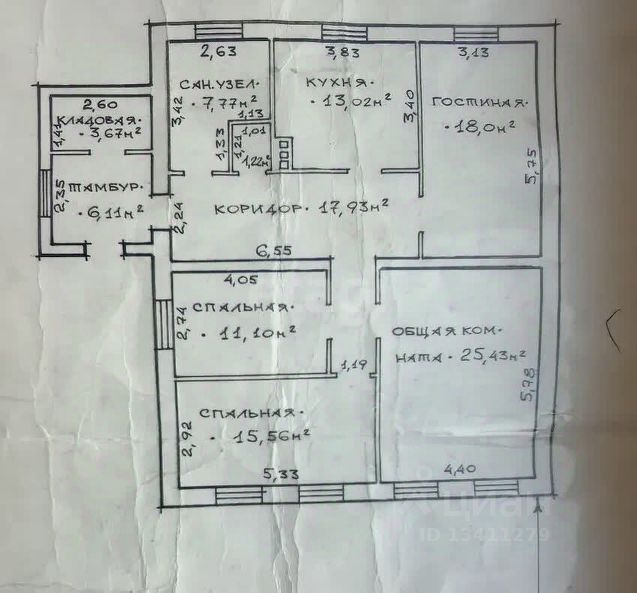 2,63
САН.УЗЕЛ.
7,77м²
3,42
1,13
1,33
1,01
1,21
1,22м²
3,83
КУХНЯ.
13,02м²
3,40
3,13
ГОСТИНАЯ.
18,0м²
5,75
2,60
КЛАДОВАЯ.
3,67м²
1,41
ТАМБУР.
6,11м²
2,35
2,24
КОРИДОР. 17,93м²
6,55
4,05
СПАЛЬНАЯ.
11,10м²
2,74
1,19
ОБЩАЯ КОМ-
НАТА. 25,43м²
5,78
4,40
СПАЛЬНАЯ.
15,56м²
2,92
5,33
циан
ID 15411279